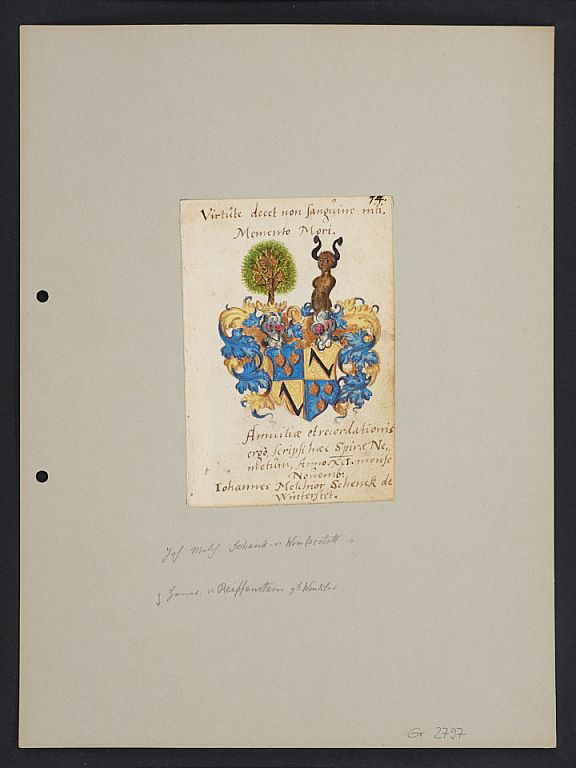 74.
Virtute decet non sanguine niti.
Memento Mori.
Amicitiæ et recordationis
ergò scripsi hæc Spiræ Ne,,
metum, Anno XII. mense
Novemb.
Iohannes Melchior Schenck de
Winterstet.
Joh. Melch. Schenk v. Winterstett
v. Reiffenstein gt. Winkler
Gr 2797